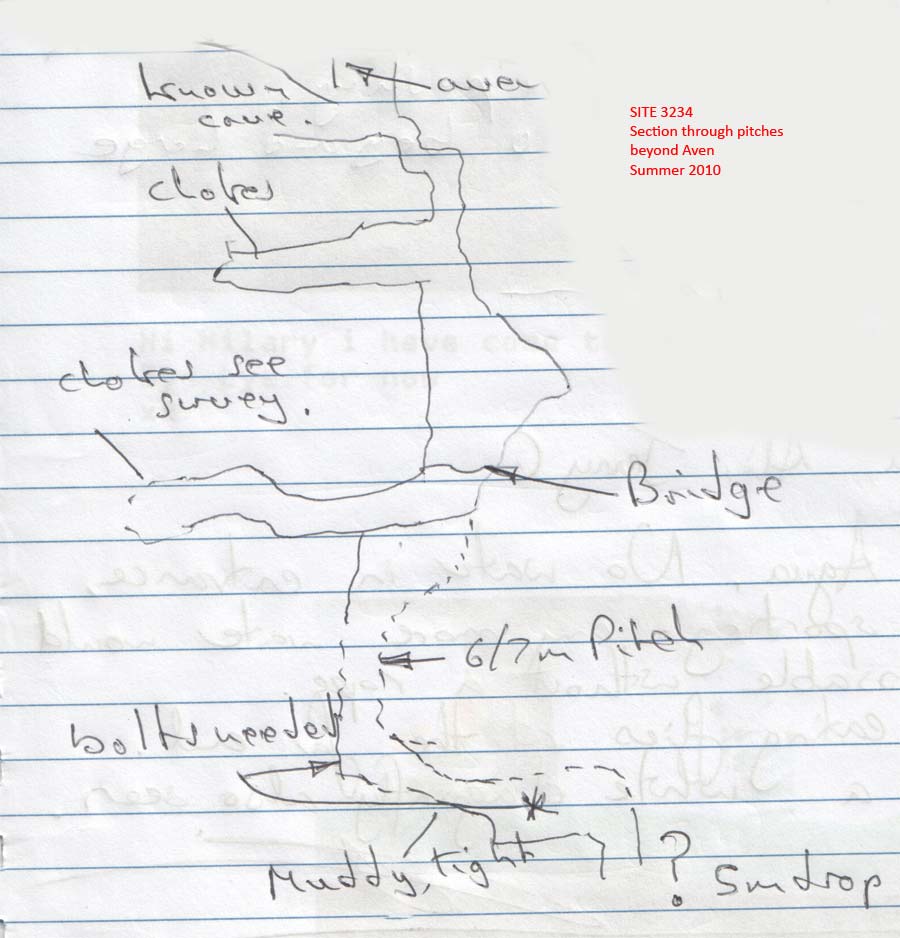 known
cave.
aven
SITE 3234
Section through pitches
beyond Aven
Summer 2010
chokes
chokes see
survey.
Bridge
6/7m Pitch
bolts needed
Muddy, tight
? 5m drop